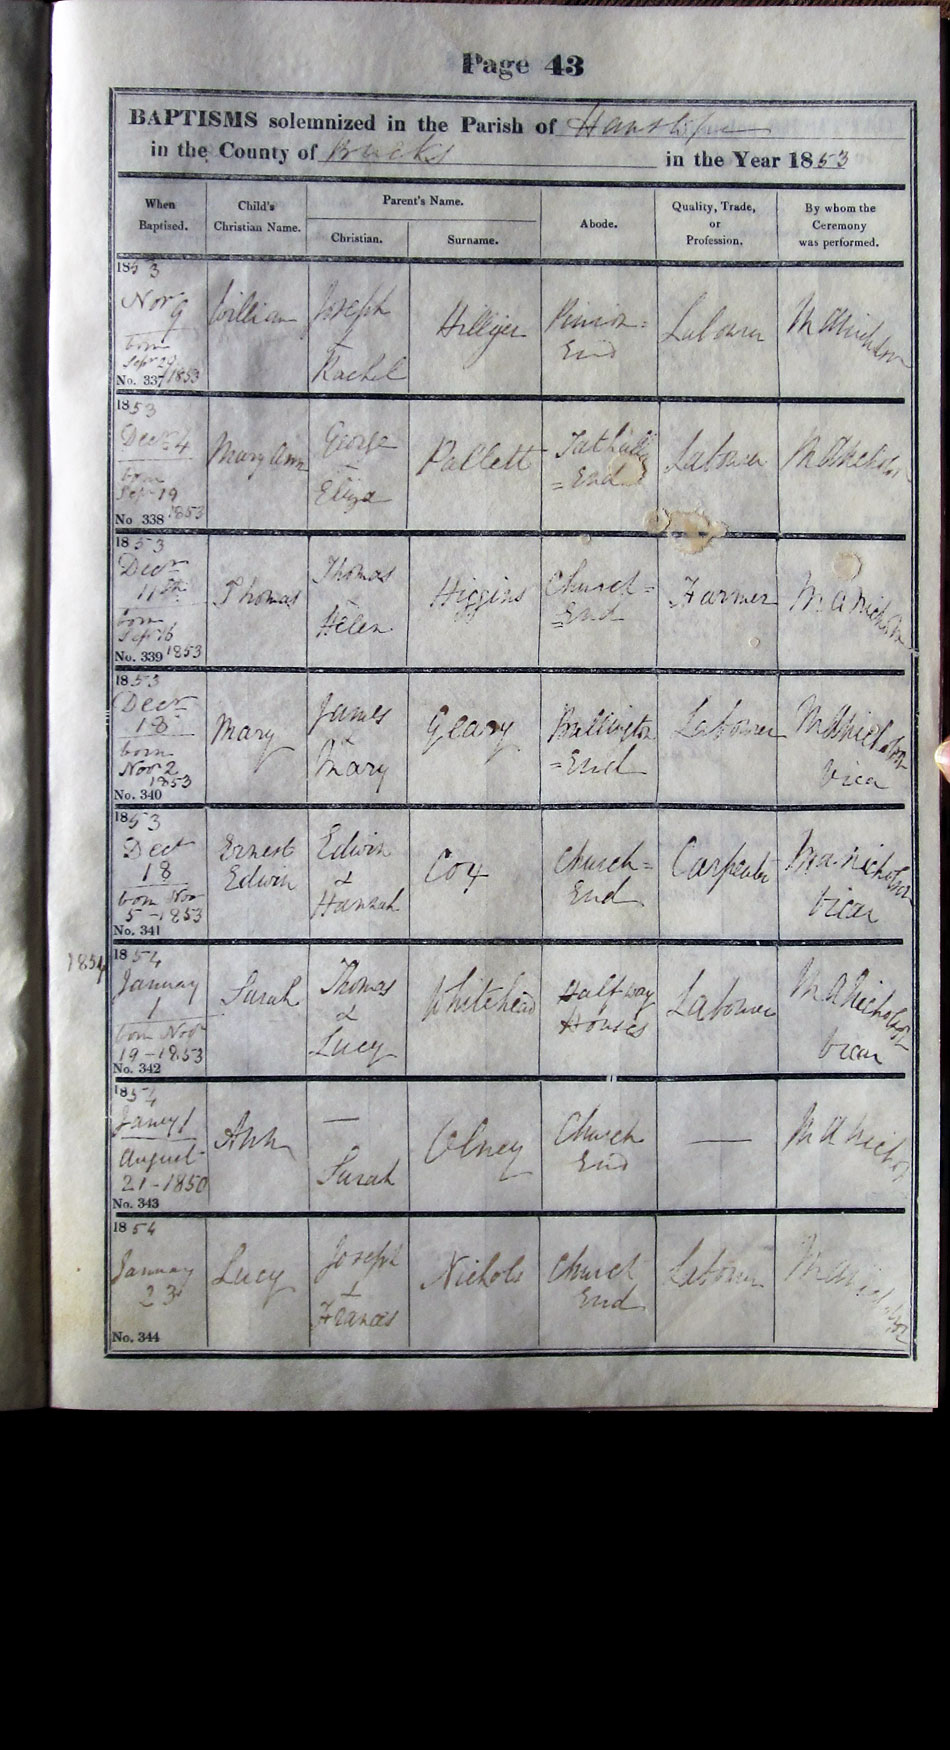 Page 43
BAPTISMS solemnized in the Parish of Hanslope
in the County of Bucks in the Year 1853
When Baptised.
Child's Christian Name.
Parent's Name.
Christian.
Surname.
Abode.
Quality, Trade, or Profession.
By whom the Ceremony was performed.
1853
Novr 9
born
Sepr 29 1853
No. 337
William
Joseph
&
Rachel
Hillyer
Pinion=
End
Labourer
M A Nicholson
1853
Decr 4
born
Sepr 19
1853
No 338
Mary Ann
George
&
Eliza
Pallett
Tathall
=End
Labourer
M A Nicholson
1853
Decr
11th
born
Sepr 16
1853
No. 339
Thomas
Thomas
&
Helen
Higgins
Church=
End
Farmer
M A Nicholson
1853
Decr
18
born
Novr 2
1853
No. 340
Mary
James
&
Mary
Geary
Bullington
=End
Labourer
M A Nicholson
Vicar
1853
Decr
18
born Novr
5-1853
No. 341
Ernest
Edwin
Edwin
&
Hannah
Cox
Church=
End
Carpenter
M A Nicholson
Vicar
1854
1854
January
1
born Novr
19-1853
No. 342
Sarah
Thomas
&
Lucy
Whitehead
Half way
Houses
Labourer
M A Nicholson
Vicar
1854
Jany 1
August
21-1850
No. 343
Ann
—
Sarah
Olney
Church
End
—
M A Nichol
1854
January
23
No. 344
Lucy
Joseph
&
Frances
Nichols
Church
End
Labourer
M A Nicholson